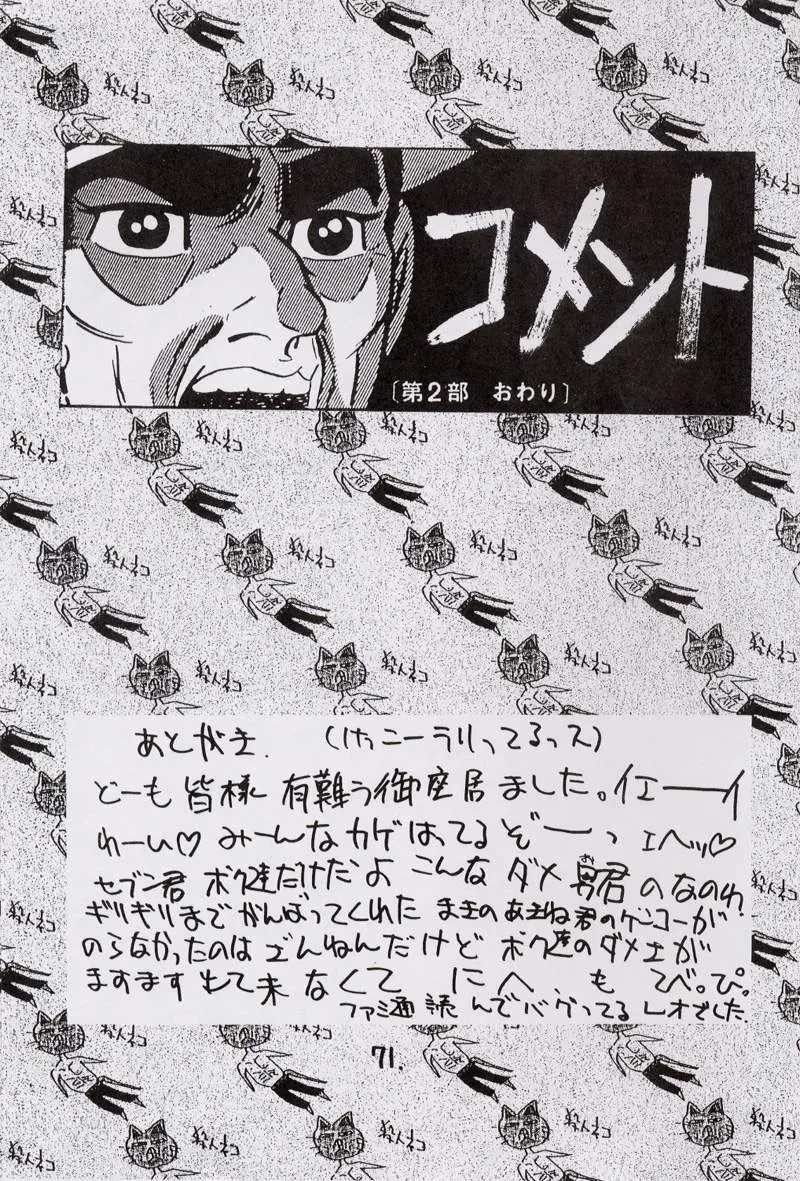 コメント
〔第2部 おわり〕
あとがき. (けっこーラリってるっス)
どーも皆様 有難う御座居ました。イエーーイ
わーい♡ みーんなカゲはってるぞーっ エヘッ♡
セブン君 ボク達だけだよ こんな ダメ勇君のなのわ
ギリギリまでがんばってくれた まきのあきね君のゲンコーが
のらなかったのは ざんねんだけど ボク達のダメエが
ますます 出て来なくて にへ、も てべ。ぴ。
ファミ通 読んでバグってる レオでした.
71.
殺人ネコ